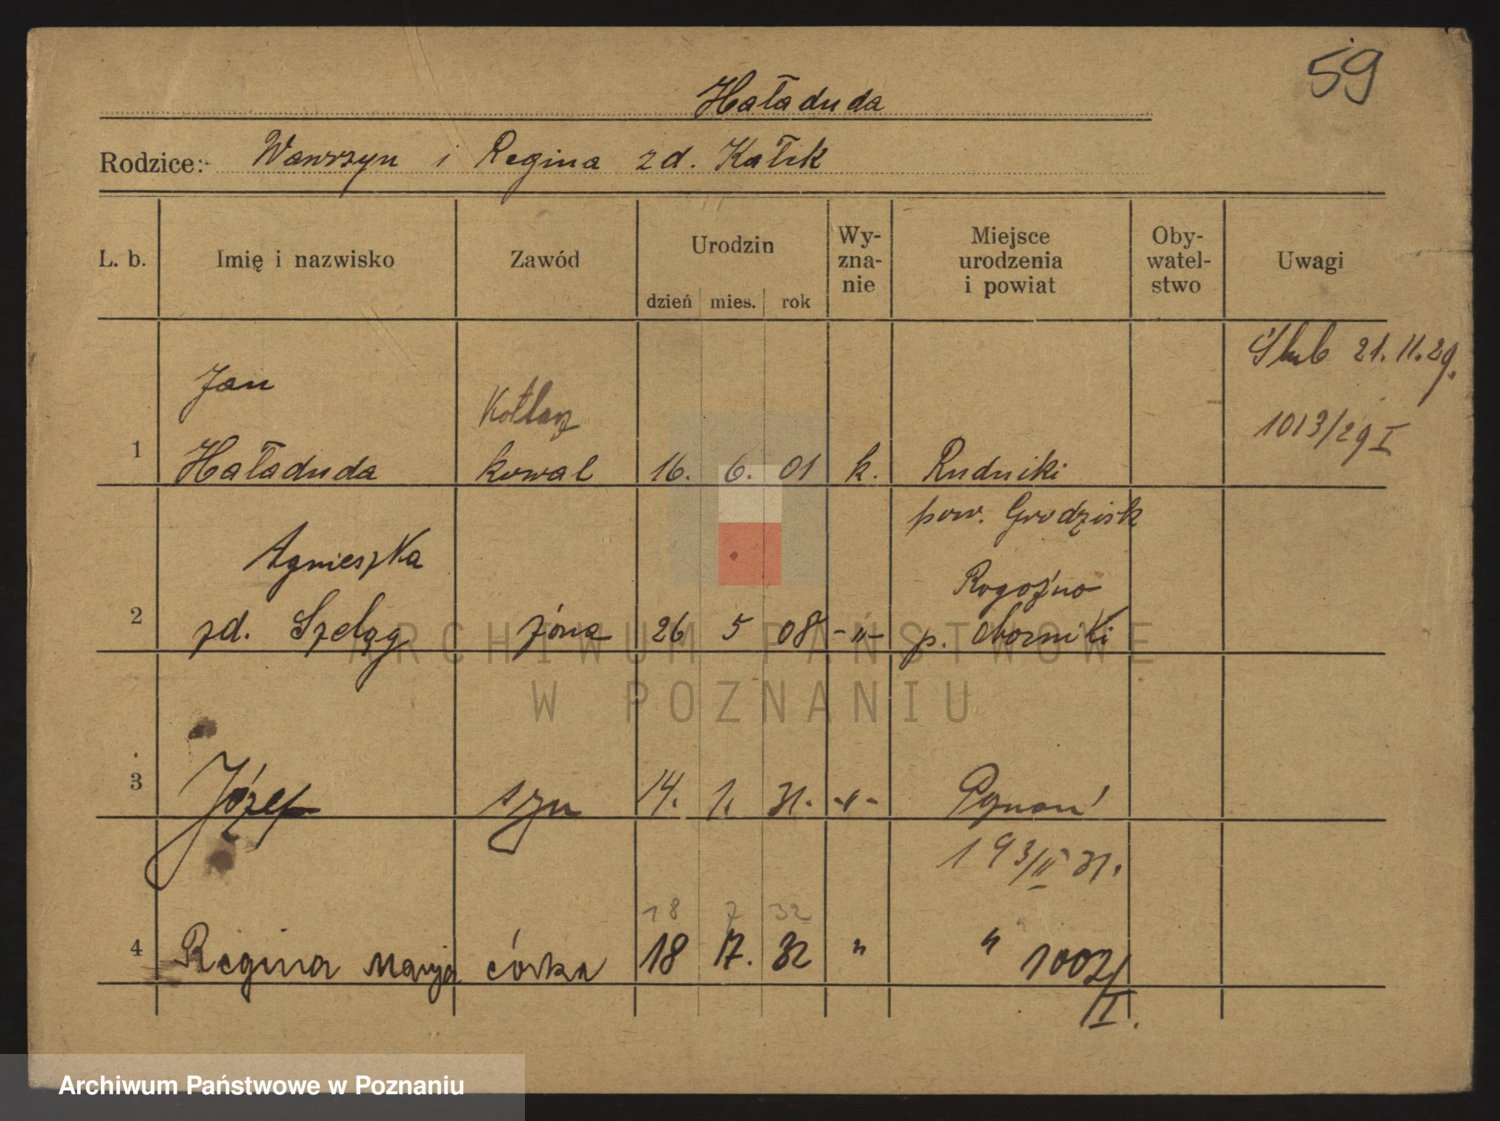 59
Haładuda
Rodzice:- Wawrzyn i Regina zd. Kałik
L. b. Imię i nazwisko Zawód Urodzin Wy-zna-nie Miejsce urodzenia i powiat Oby-watel-stwo Uwagi
dzień mies. rok
Ślub 21.11.29.
Jan Kotlarz 1013/29 I
1 Haładuda kowal 16. 6. 01 k. Rudniki
pow. Grodzisk
Agnieszka Rogoźno
2 zd. Szeląg żona 26 5 08 -"- p. Oborniki
ARCHIWUM PAŃSTWOWE
W POZNANIU
3 Józef syn 14. 1. 31. -"- Poznań
193/II 31.
18 7 32
4 Regina Marja córka 18 7. 32 " " 1002/
I.
Archiwum Państwowe w Poznaniu